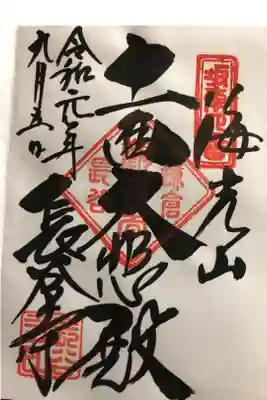 海光山
十一面大悲殿
鎌倉
長谷
長谷寺
令和元年
九月五日